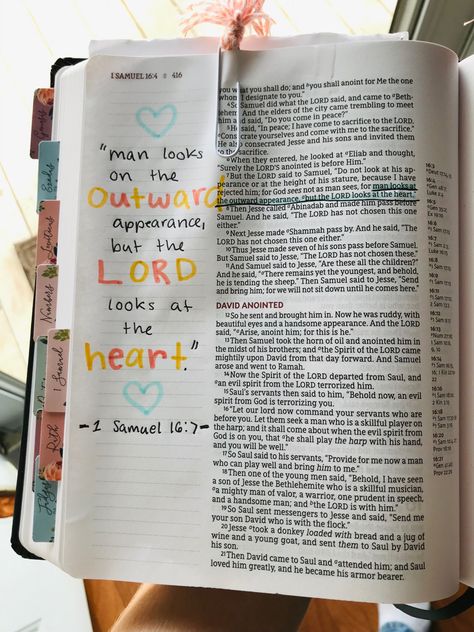 1 SAMUEL 16:4 416
"man looks
on the
Outward
appearance,
but the
LORD
looks at
the
heart."
-1 Samuel 16:7-
you what you shall do; and you shall anoint for Me the one
whom I designate to you."
4 So Samuel did what the LORD said, and came to Beth-
lehem. And the elders of the city came trembling to meet
him and said, "Do you come in peace?"
5 He said, "In peace; I have come to sacrifice to the LORD.
Consecrate yourselves and come with me to the sacrifice."
He also consecrated Jesse and his sons and invited
the sacrifice.
6 When they entered, he looked at Eliab and thought,
"Surely the LORD's anointed is before Him."
7 But the LORD said to Samuel, "Do not look at his ap-
pearance or at the height of his stature, because I have
rejected him; for God sees not as man sees, for man looks at
the outward appearance, but the LORD looks at the heart."
8 Then Jesse called Abinadab and made him pass before
Samuel. And he said, "The LORD has not chosen this one
either."
9 Next Jesse made Shammah pass by. And he said, "The
LORD has not chosen this one either."
10 Thus Jesse made seven of his sons pass before Samuel.
But Samuel said to Jesse, "The LORD has not chosen these."
11 And Samuel said to Jesse, "Are these all the children?"
And he said, "There remains yet the youngest, and behold,
he is tending the sheep." Then Samuel said to Jesse, "Send
and bring him; for we will not sit down until he comes here."
DAVID ANOINTED
12 So he sent and brought him in. Now he was ruddy, with
beautiful eyes and a handsome appearance. And the LORD
said, "Arise, anoint him; for this is he."
13 Then Samuel took the horn of oil and anointed him in
the midst of his brothers; and the Spirit of the LORD came
mightily upon David from that day forward. And Samuel
arose and went to Ramah.
14 Now the Spirit of the LORD departed from Saul, and
an evil spirit from the LORD terrorized him.
15 Saul's servants then said to him, "Behold now, an evil
spirit from God is terrorizing you.
16 "Let our lord now command your servants who are
before you. Let them seek a man who is a skillful player on
the harp; and it shall come about when the evil spirit from
God is on you, that he shall play the harp with his hand,
and you will be well."
17 So Saul said to his servants, "Provide for me now a man
who can play well and bring him to me."
18 Then one of the young men said, "Behold, I have seen
a son of Jesse the Bethlehemite who is a skillful musician,
a mighty man of valor, a warrior, one prudent in speech,
and a handsome man; and the LORD is with him."
19 So Saul sent messengers to Jesse and said, "Send me
your son David who is with the flock."
20 Jesse took a donkey loaded with bread and a jug of
wine and a young goat, and sent them to Saul by David
his son.
21 Then David came to Saul and attended him; and Saul
loved him greatly, and he became his armor bearer.
Joshua
Judges
Ruth
1 Samuel